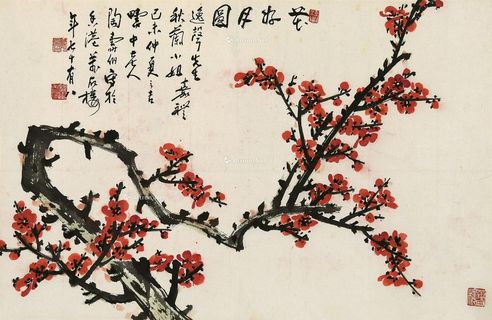 花好月圓
逸聲先生
秋蘭小姐嘉禮
己未仲夏之吉
雲中老人
陶壽伯寫於
香港萬石樓
年七十有八